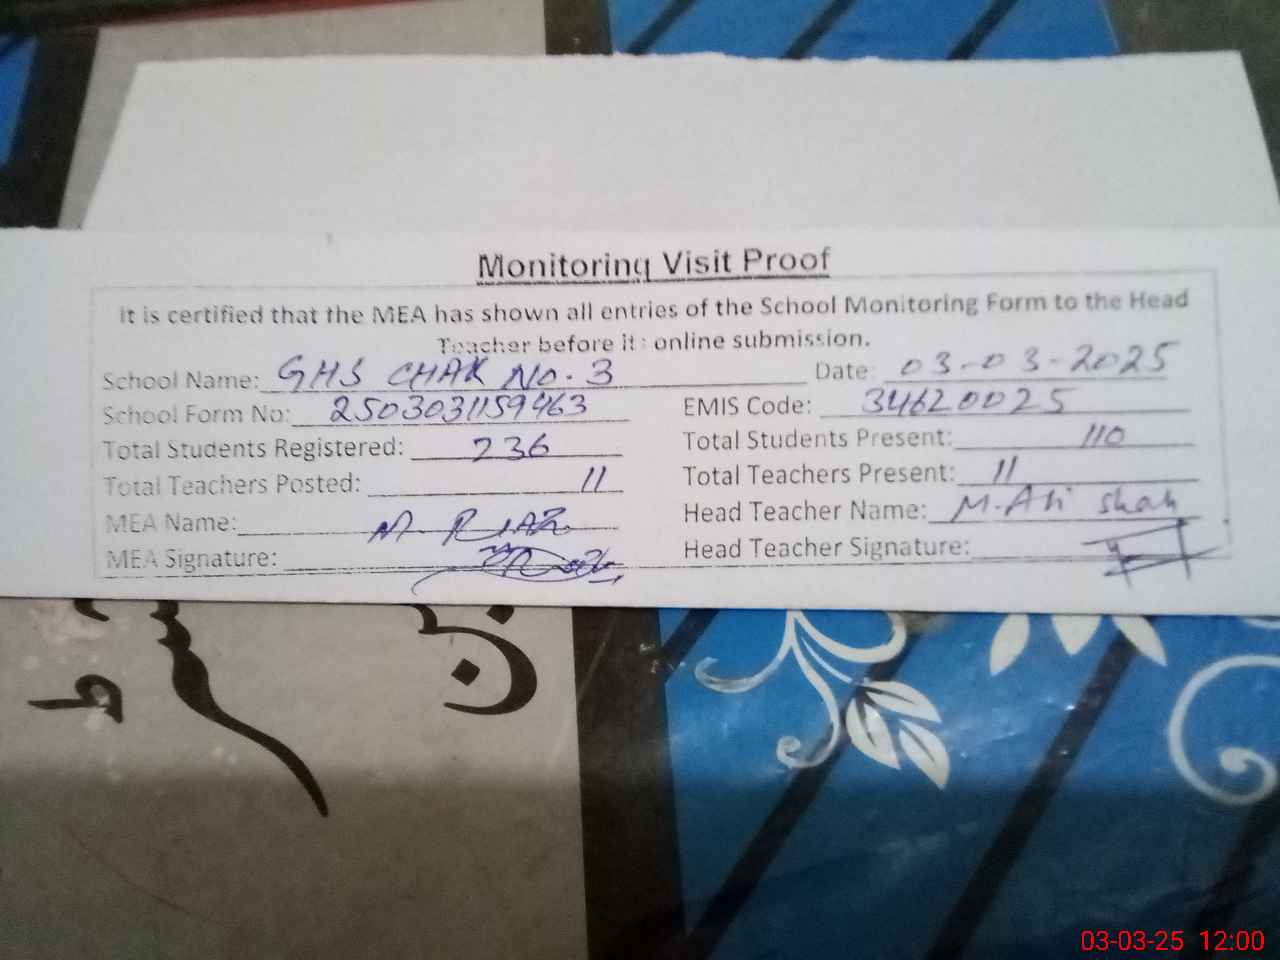 Monitoring Visit Proof
It is certified that the MEA has shown all entries of the School Monitoring Form to the Head
Teacher before its online submission.
School Name: GHS CHAK NO. 3 Date: 03-03-2025
School Form No: 2503031159463 EMIS Code: 34620025
Total Students Registered: 236 Total Students Present: 110
Total Teachers Posted: 11 Total Teachers Present: 11
MEA Name: M RIAZ Head Teacher Name: M. Ali Shah
MEA Signature: Head Teacher Signature:
03-03-25 12:00